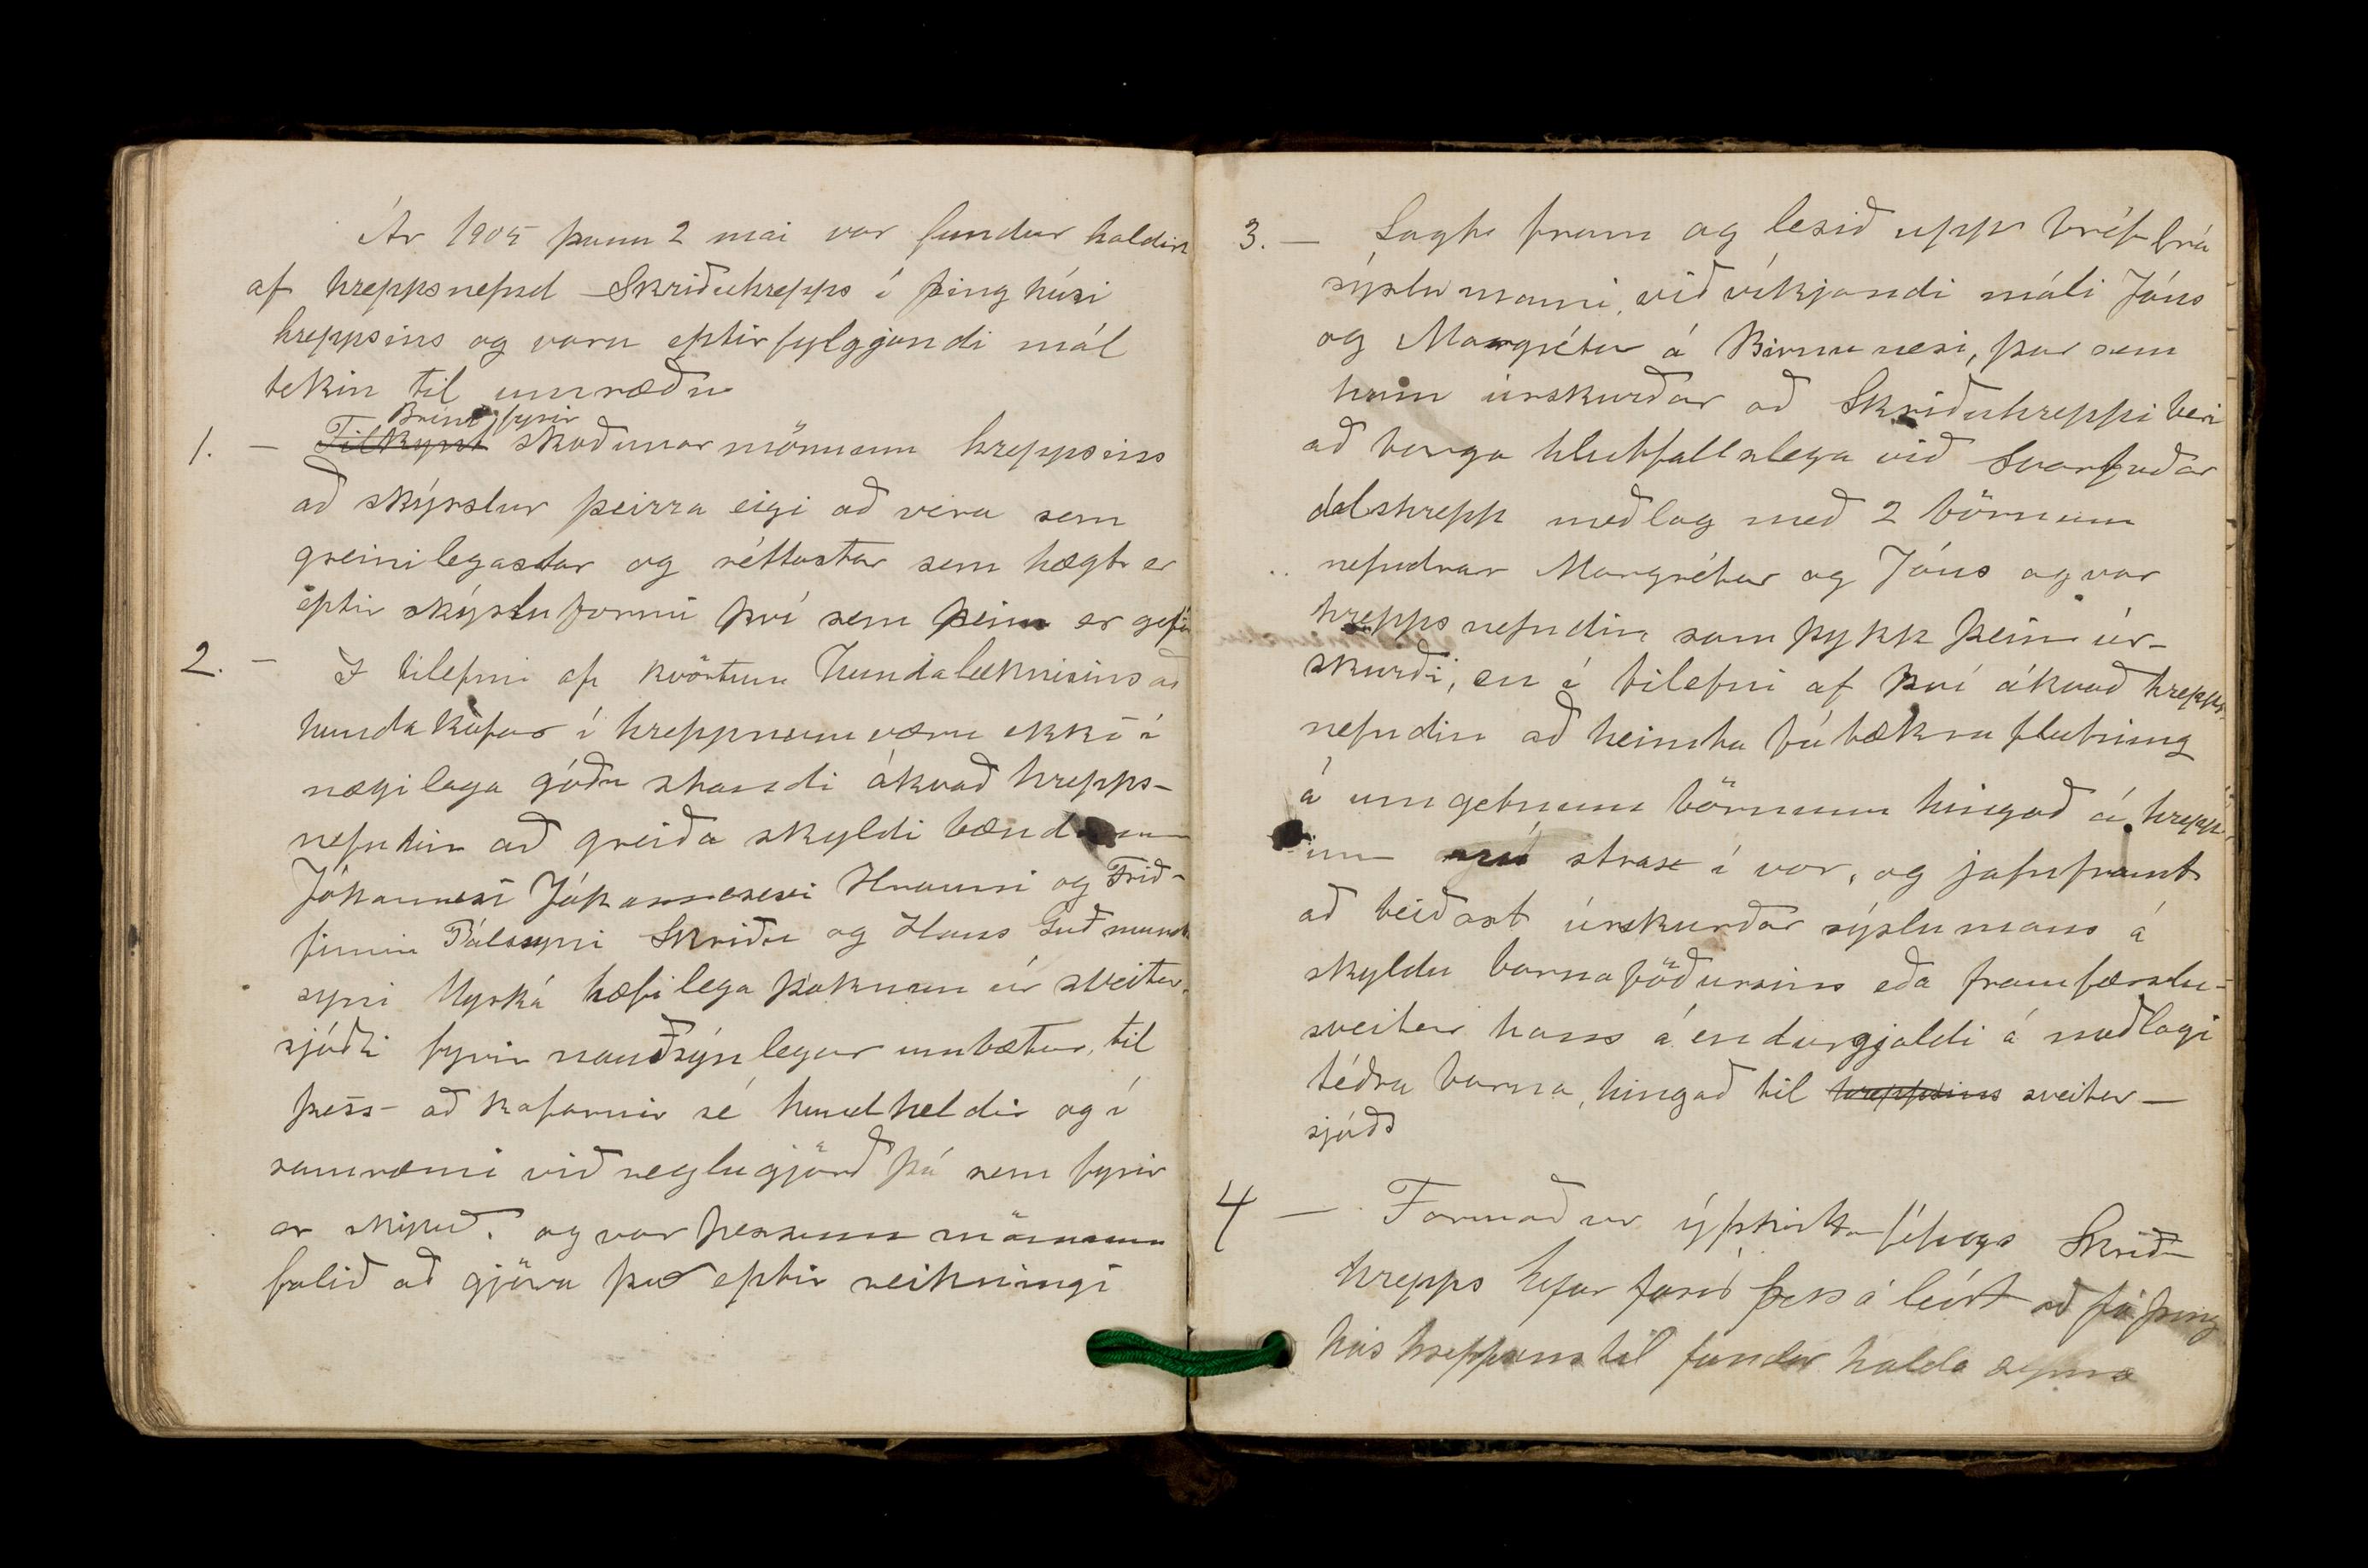 Ár 1905 þann 2 mai var fundur haldin
af hreppsnefnd Skriðuhrepps í þinghúsi
hreppsins og voru eptirfylgjandi mál
tekin til umræðu
Brínt fyrir
1. – Tilkynt skoðunarmönnum hreppsins
að skýrslur þeirra eigi að vera sem
greinilegastar og réttastar sem hægt er
eptir skýrsluformi því sem þeim er gefið
2. – I tilefni af kvörtun hundalæknisins að
hundakofar í hreppnum væru ekki í
nægilega góðu standi ákvað hrepps-
nefndin að greiða skyldi bændunum
Jóhannesi Jóhannessyni Hrauni og Frið-
finni Pálssyni Skriðu og Hans Guðmunds
syni Myrká hæfilega þoknun úr sveitar-
sjóði fyrir nauðsýnlegar umbætur, til
þess að kofarnir sé hundheldir og í
samræmi við reglugjörð þá sem fyrir
er skipuð. og var þessum mönnum
falið að gjöra það eptir reikningi
3. – Lagt fram og lesið upp bréf frá
sýslumanni, viðvíkjandi máli Jóns
og Margrétar á Birnunesi, þar sem
hann úrskurðar að Skriðuhreppi beri
að borga hlutfallslega við Svarfaðar
dalshrepp meðlag með 2 börnum
nefndrar Margrétar og Jóns og var
hreppsnefndin samþykk þeim úr-
skurði, en í tilefni af því ákvað hrepps-
nefndin að heimta fátækra flutning
á umgetnum börnum hingað á hrepp-
inn strax í vor, og jafnframt
að beiðast úrskurðar sýslumans á
skyldu barnaföðursins eða framfærslu-
sveitar hans á endurgjaldi á meðlagi
téðra barna, hingað til hreppsins sveitar-
sjóðs
4 – Formaður Skriðu
hrepps hefur farið þess á leit að fá þing
hús hreppsins til fundar halda